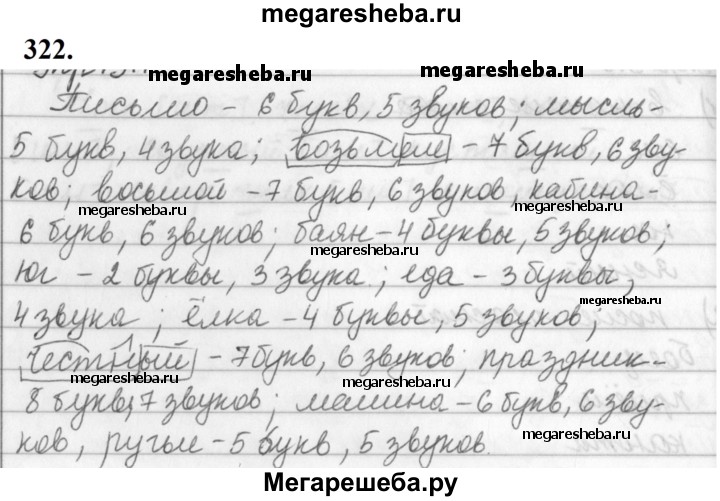 megaresheba.ru
322.
megaresheba.ru megaresheba.ru
Письмо - 6 букв, 5 звуков; мысль-
5 букв, 4 звука; возьмем - 7 букв, 6 зву-
ков; восьмой - 7 букв, 6 звуков, кабина-
megaresheba.ru megaresheba.ru
6 букв, 6 звуков; баян - 4 буквы, 5 звуков;
megaresheba.ru
юг - 2 буквы, 3 звука; еда - 3 буквы,
megaresheba.ru
4 звука; ёлка - 4 буквы, 5 звуков;
megaresheba.ru
честный - 7 букв, 6 звуков; праздник-
megaresheba.ru
8 букв, 7 звуков; машина - 6 букв, 6 зву-
megaresheba.ru
ков, ручьи - 5 букв, 5 звуков.
megaresheba.ru
Мегарешеба.ру